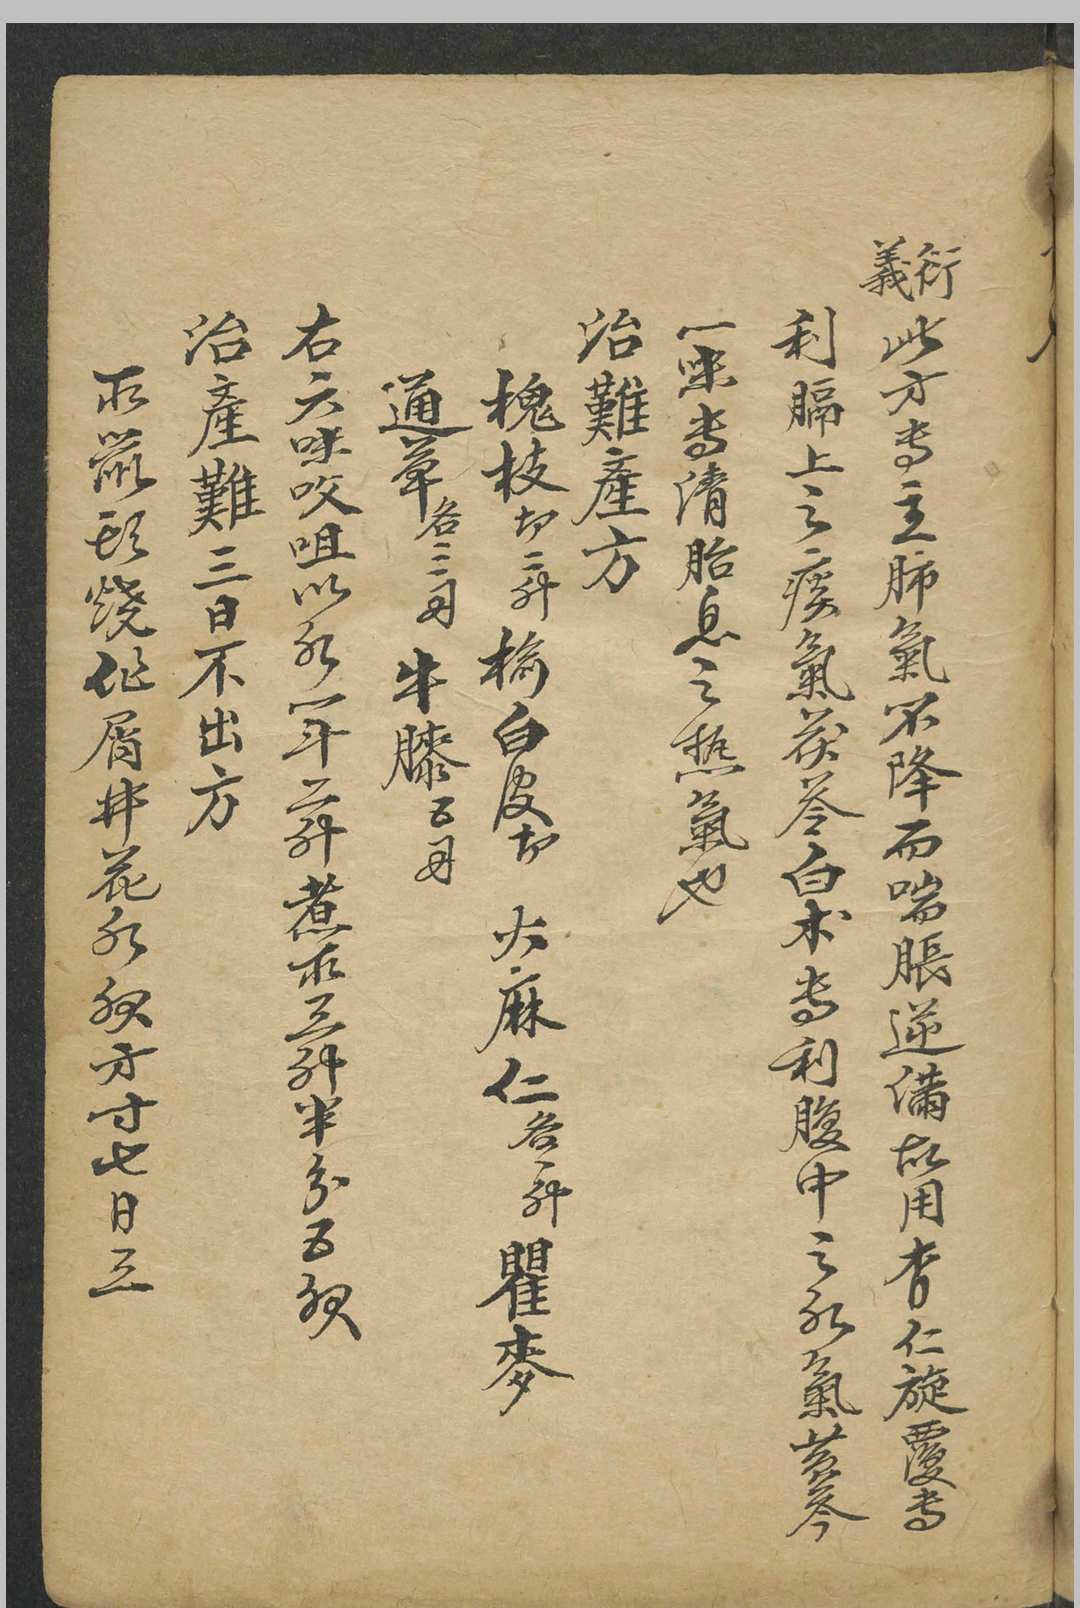 衍義 此方専主肺氣不降而喘脹逆滿故用杏仁旋覆専
利膈上之痰氣茯苓白朮専利腹中之水氣黄芩
一味専清胎息之熱氣也
治難産方
槐枝切二升 榆白皮切 大麻仁各一升 瞿麥
通草各三两 牛膝五两
右六味㕮咀以水一斗二升煮取三升半分五服
治產難三日不出方
取鼠頭燒作屑井花水服方寸匕日三